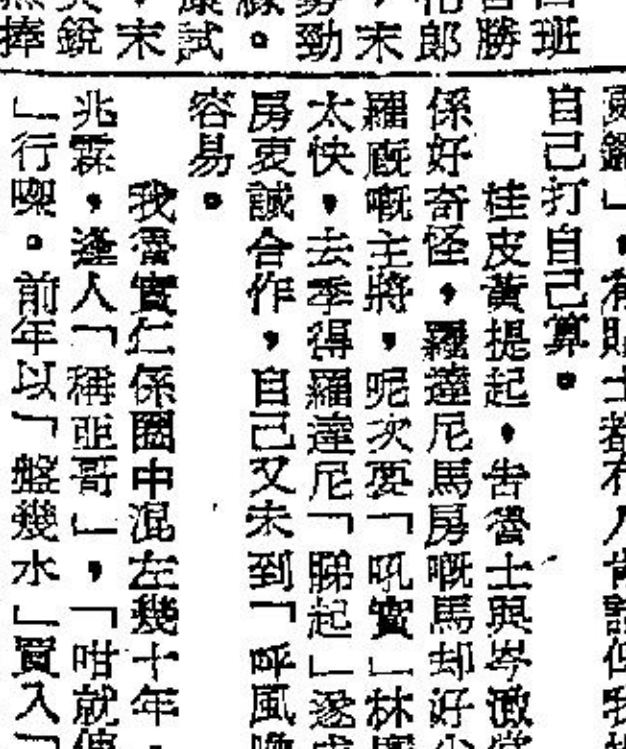 班
勝
郎
末
勁
。
試
末
銳
捧
」,有貼士都冇人肯話但我
自己打自己算。
桂皮黃提起,告魯士與岑徹
係好奇怪,羅達尼馬房嘅馬却好少
羅廐嘅主將,呢次要「吼實」林
太快,去季得羅達尼「睇起」遂
房衷誠合作,自己又未到「呼風
容易。
我魯實仁係圈中混左幾十年,
兆霖,逢人「稱亞哥」,「咁就
」行㗎。前年以「盤幾水」買入「